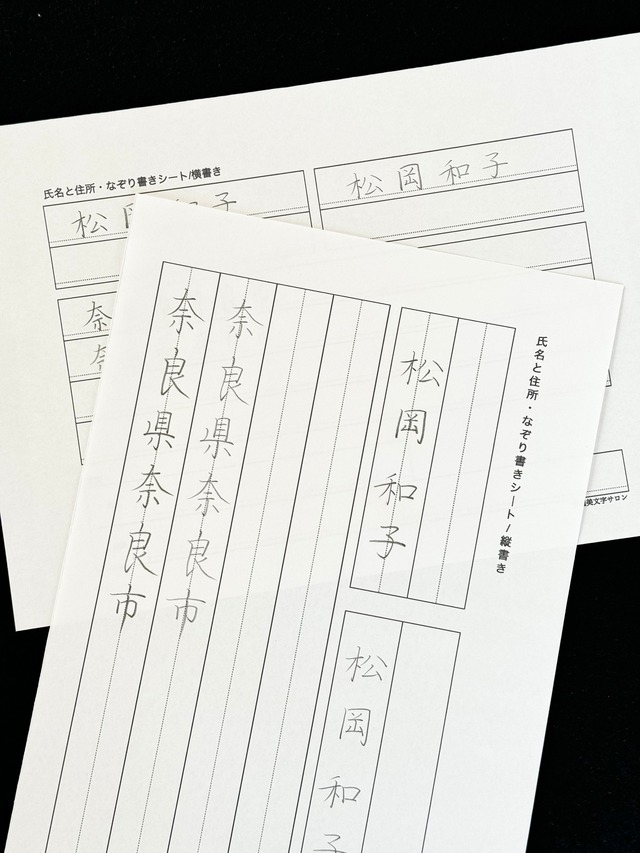 氏名と住所・なぞり書きシート/横書き
松岡和子
松岡 和子
奈
奈
氏名と住所・なぞり書きシート/縦書き
松岡 和子
松岡 和子
奈良県奈良市
奈良県奈良市
英文字サロン